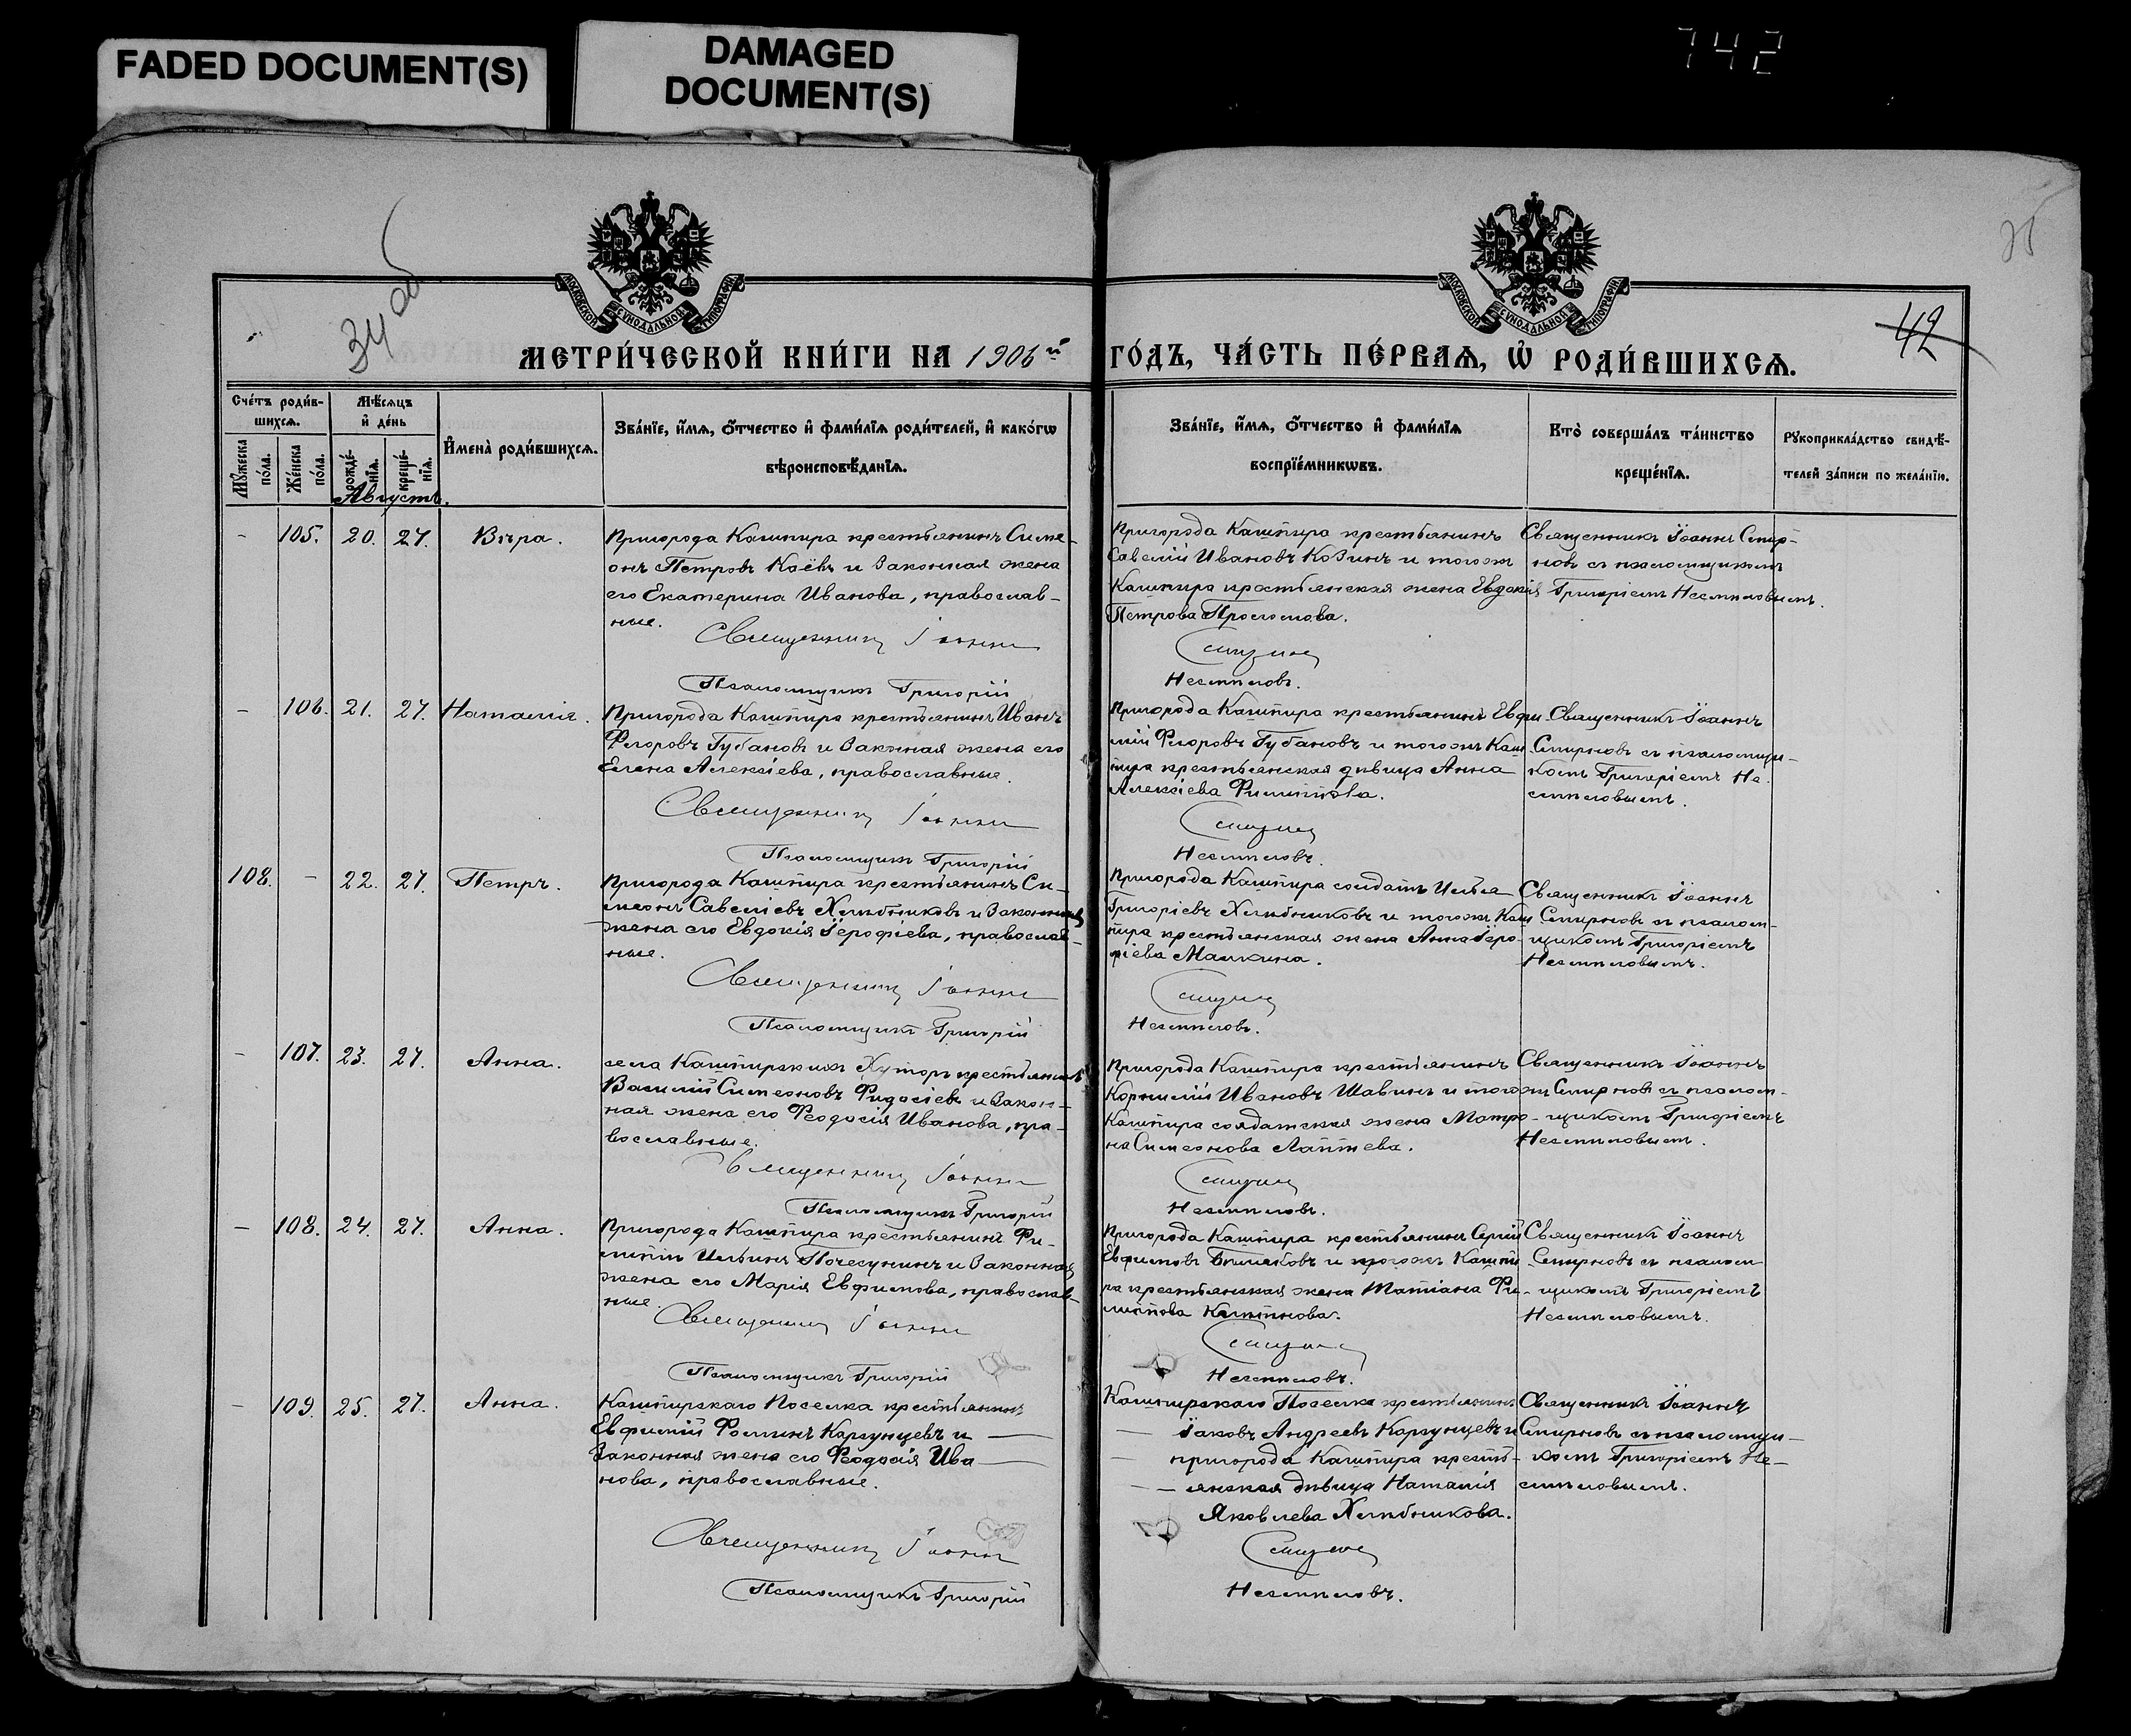 FADED DOCUMENT(S)
DAMAGED
DOCUMENT(S)
742
34 об
25
42
МОСКОВСКОЙ СѴНОДАЛЬНОЙ ТИПОГРАФІИ
МОСКОВСКОЙ СѴНОДАЛЬНОЙ ТИПОГРАФІИ
МЕТРИ́ЧЕСКОЙ КНИ́ГИ НА 1906й
ГО́ДЪ, ЧА́СТЬ ПЕ́РВАѦ, Ѡ҆ РОДИ́ВШИХСѦ.
Сче́тъ роди́в-
шихсѧ.
Мѣ́сѧцъ
и҆ де́нь
Мꙋ́жеска по́ла.
Же́нска по́ла.
рожде́-
нїѧ.
креще́-
нїѧ.
И҆мена̀ роди́вшихсѧ.
Зва́нїе, и҆́мѧ, ѻ҆́тчество и҆ фами́лїѧ роди́телей, и҆ како́гѡ
вѣроисповѣ́данїѧ.
Зва́нїе, и҆́мѧ, ѻ҆́тчество и҆ фами́лїѧ
воспрїе́мникѡвъ.
Кто̀ соверша́лъ та́инство
креще́нїѧ.
Рꙋкоприкла́дство свидѣ́-
телей за́писи по жела́нїю.
Августъ.
- 105. 20. 27. Вѣра.
Пригорода Кашпира крестьянинъ Симе-
онъ Петровъ Каёвъ и законная жена
его Екатерина Иванова, православ-
ные.
Священникъ Іоаннъ
Псаломщикъ Григорій
Пригорода Кашпира крестьянинъ
Савелій Ивановъ Козинъ и тогожъ
Кашпира крестьянская жена Евдокія
Петрова
Смирновъ
Несмѣловъ.
Священникъ Іоаннъ Смир-
новъ съ псаломщикомъ
Григоріемъ Несмѣловымъ.
- 106. 21. 27. Наталія.
Пригорода Кашпира крестьянинъ Иванъ
Ѳедоровъ Губановъ и законная жена его
Елена Алексіева, православные.
Священникъ Іоаннъ
Псаломщикъ Григорій
Пригорода Кашпира крестьянинъ Евфи
мій Ѳедоровъ Губановъ и тогожъ Каш
пира крестьянская дѣвица Анна
Алексіева Филиппова.
Смирновъ
Несмѣловъ.
Священникъ Іоаннъ
Смирновъ съ псаломщи-
комъ Григоріемъ Не-
смѣловымъ.
108. - 22. 27. Петръ.
Пригорода Кашпира крестьянинъ Си-
меонъ Савеліевъ Хлѣбниковъ и законная
жена его Евдокія Іерофіева, православ-
ные.
Священникъ Іоаннъ
Псаломщикъ Григорій
Пригорода Кашпира солдатъ Илья
Григоріевъ Хлѣбниковъ и тогожъ Каш
пира крестьянская жена Анна Іеро-
фіева Малкина.
Смирновъ
Несмѣловъ.
Священникъ Іоаннъ
Смирновъ съ псалом-
щикомъ Григоріемъ
Несмѣловымъ.
- 107. 23. 27. Анна.
села Кашпирскихъ Хуторъ крестьянинъ
Василій Симеоновъ Фидосіевъ и закон-
ная жена его Ѳеодосія Иванова, пра-
вославные.
Священникъ Іоаннъ
Псаломщикъ Григорій
Пригорода Кашпира крестьянинъ
Корнилій Ивановъ Шавинъ и тогожъ
Кашпира солдатская жена Матро-
на Симеонова Лаптева.
Смирновъ
Несмѣловъ.
Священникъ Іоаннъ
Смирновъ съ псалом-
щикомъ Григоріемъ
Несмѣловымъ.
- 108. 24. 27. Анна.
Пригорода Кашпира крестьянинъ Фи-
липпъ Ильинъ Почесунинъ и законная
жена его Марія Евфимова, православ-
ные.
Священникъ Іоаннъ
Псаломщикъ Григорій
Пригорода Кашпира крестьянинъ Сергій
Евфимовъ и тогожъ Кашпи
ра крестьянская жена Татіана Фи-
липпова
Смирновъ
Несмѣловъ.
Священникъ Іоаннъ
Смирновъ съ псалом
щикомъ Григоріемъ
Несмѣловымъ.
- 109. 25. 27. Анна.
Кашпирскаго Поселка крестьянинъ
Евфимій Фоминъ Каргунцевъ и
законная жена его Ѳеодосія Ива-
нова, православные.
Священникъ Іоаннъ
Псаломщикъ Григорій
Кашпирскаго Поселка крестьянинъ
Іаковъ Андреевъ Каргунцевъ и
пригорода Кашпира кресть-
янская дѣвица Наталія
Яковлева Хлѣбникова.
Смирновъ
Несмѣловъ.
Священникъ Іоаннъ
Смирновъ съ псаломщи-
комъ Григоріемъ Не-
смѣловымъ.